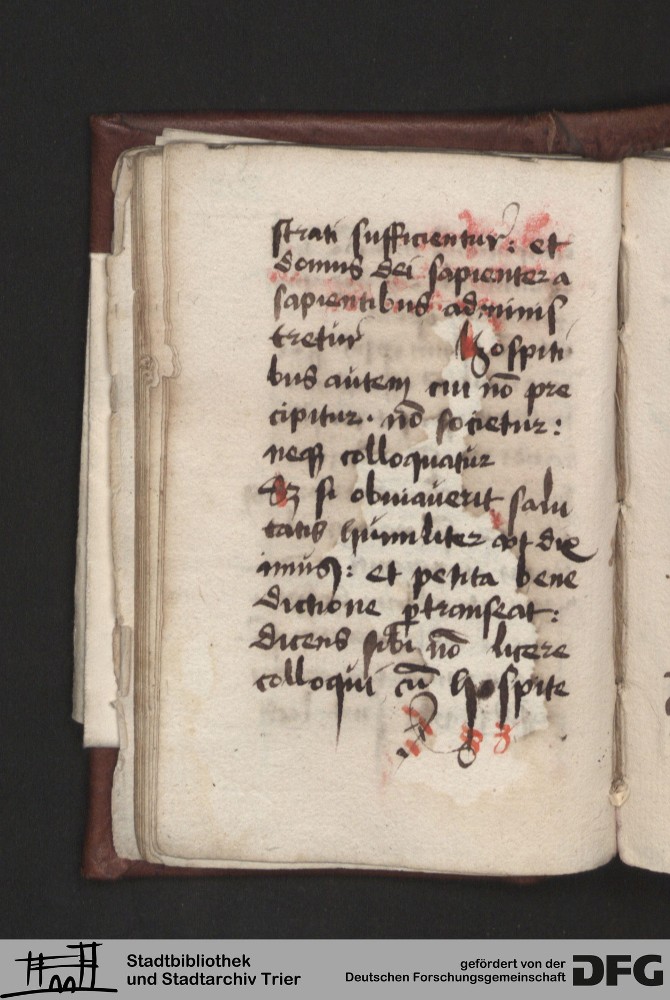 strati sufficientur: et
domus dei sapienter a
sapientibus adminis
tretur Hospiti
bus autem cui nō pre
cipitur. nō societur:
neqꝫ colloquatur
Sꝫ si obviaverit salu
tatis humiliter vt dix
imus: et petita bene
dictione ꝑtranseat:
dicens sibi nō licere
colloqui cū hospite
Stadtbibliothek
und Stadtarchiv Trier
gefördert von der
Deutschen Forschungsgemeinschaft
DFG